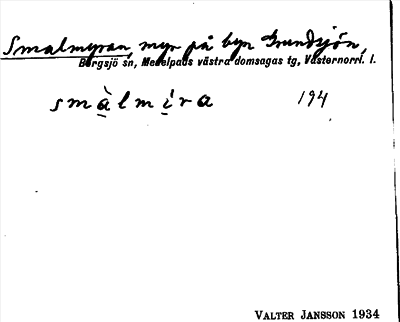 Smalmyran, myr på byn Grundsjön,
Borgsjö sn, Medelpads västra domsagas tg, Västernorrl. l.
smàlmíra 194
VALTER JANSSON 1934